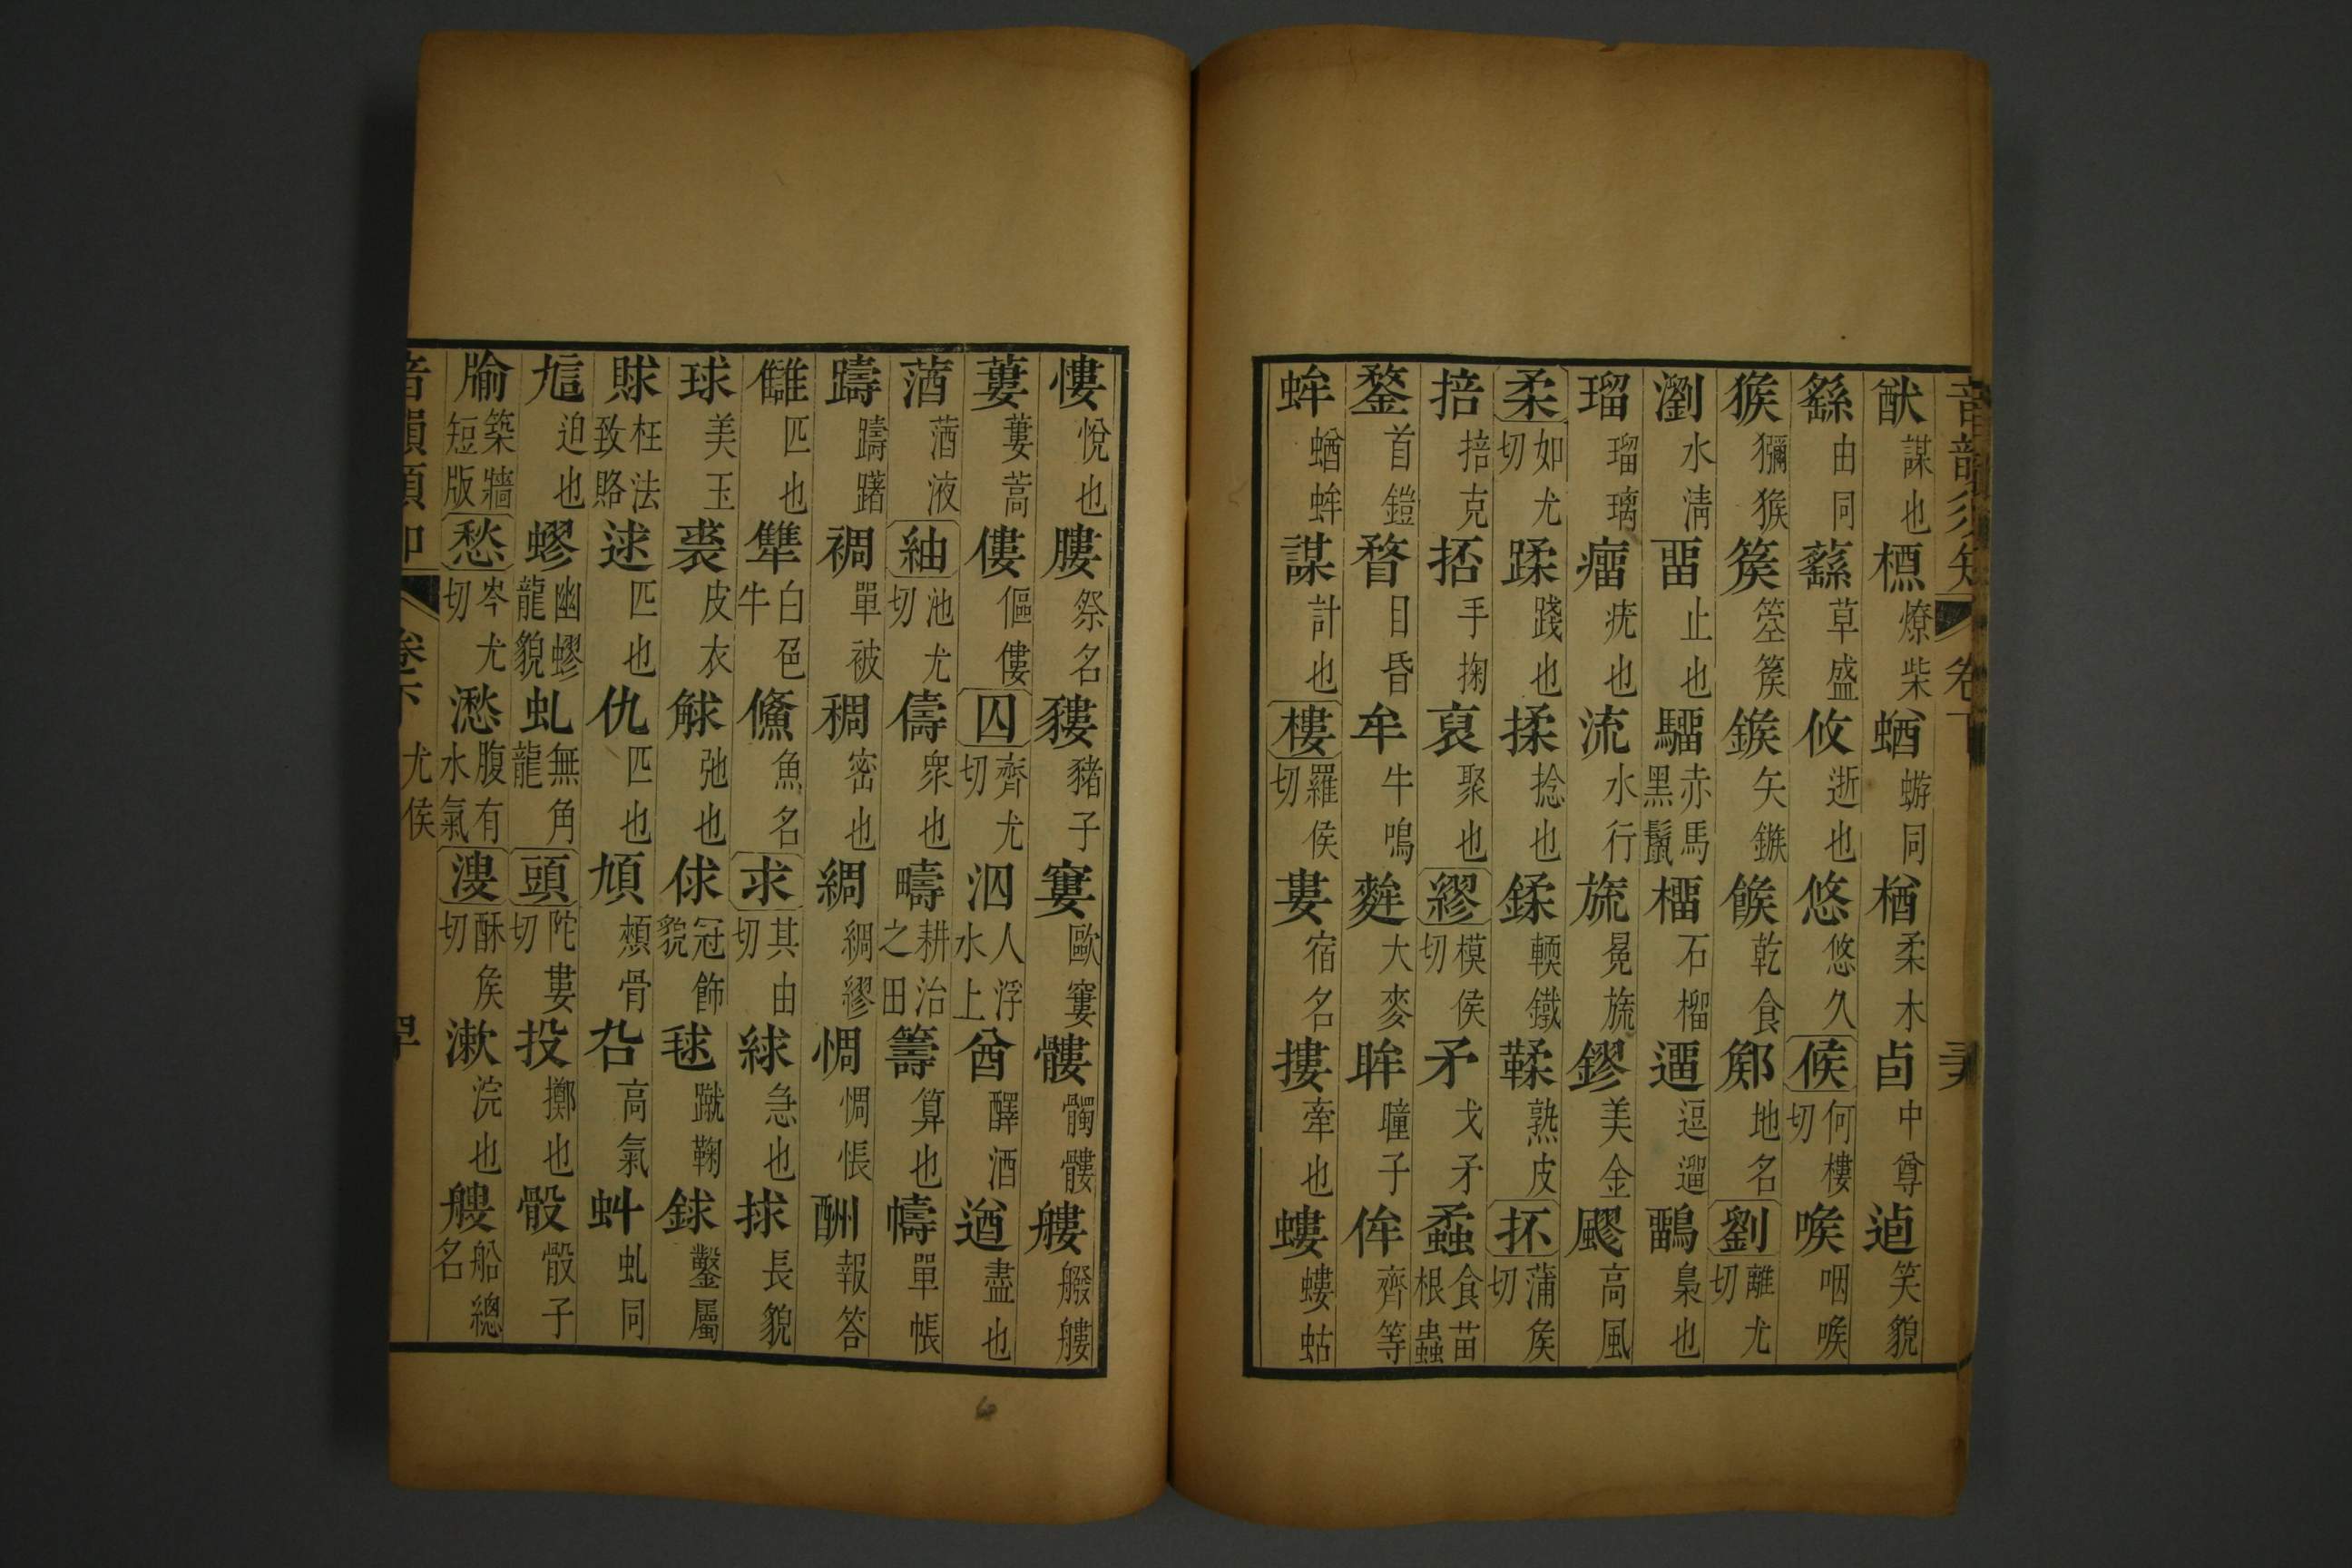 猷謀也槱燎柴蝤蝣同楢柔木卣中尊逌笑貌
繇由同蘨草盛攸逝也悠悠久候何樓切喉咽喉
猴獼猴篌箜篌鍭矢鏃餱乾食鄇地名劉離尤切
瀏水淸畱止也騮赤馬黑鬣橊石榴遛逗遛鶹梟也
瑠瑠璃瘤疣也流水行旒冕旒鏐美金飂高風
柔如尤切蹂踐也揉捻也鍒輭鐵鞣熟皮抔蒲侯切
掊掊克抔手掬裒聚也繆模侯切矛戈矛蟊食苗根蟲
鍪首鎧瞀目昏牟牛鳴麰大麥眸瞳子侔齊等
蛑蝤蛑謀計也樓羅侯切婁宿名摟牽也螻螻蛄
慺悅也膢祭名貗豬子寠歐寠髏髑髏艛艘艛
蔞蔞蒿僂傴僂囚齊尤切泅人浮水上酋醳酒遒盡也
蕕蕕液紬池尤切儔衆也疇耕治之田籌算也幬單帳
躊躊躇裯單被稠密也綢綢繆惆惆悵酬報答
讎匹也犨白色牛鯈魚名求其由切絿急也捄長貌
球美玉裘皮衣觩弛也俅冠飾貌毬蹴鞠銶鑿屬
賕枉法致賂逑匹也仇匹也頄頰骨厹高氣虯虬同
訄迫也蟉幽蟉龍貌虬無角龍頭陀婁切投擲也骰骰子
牏築牆短版愁岑尤切湫腹有水氣溲酥侯切漱浣也艘船總名
卷下 尤侯